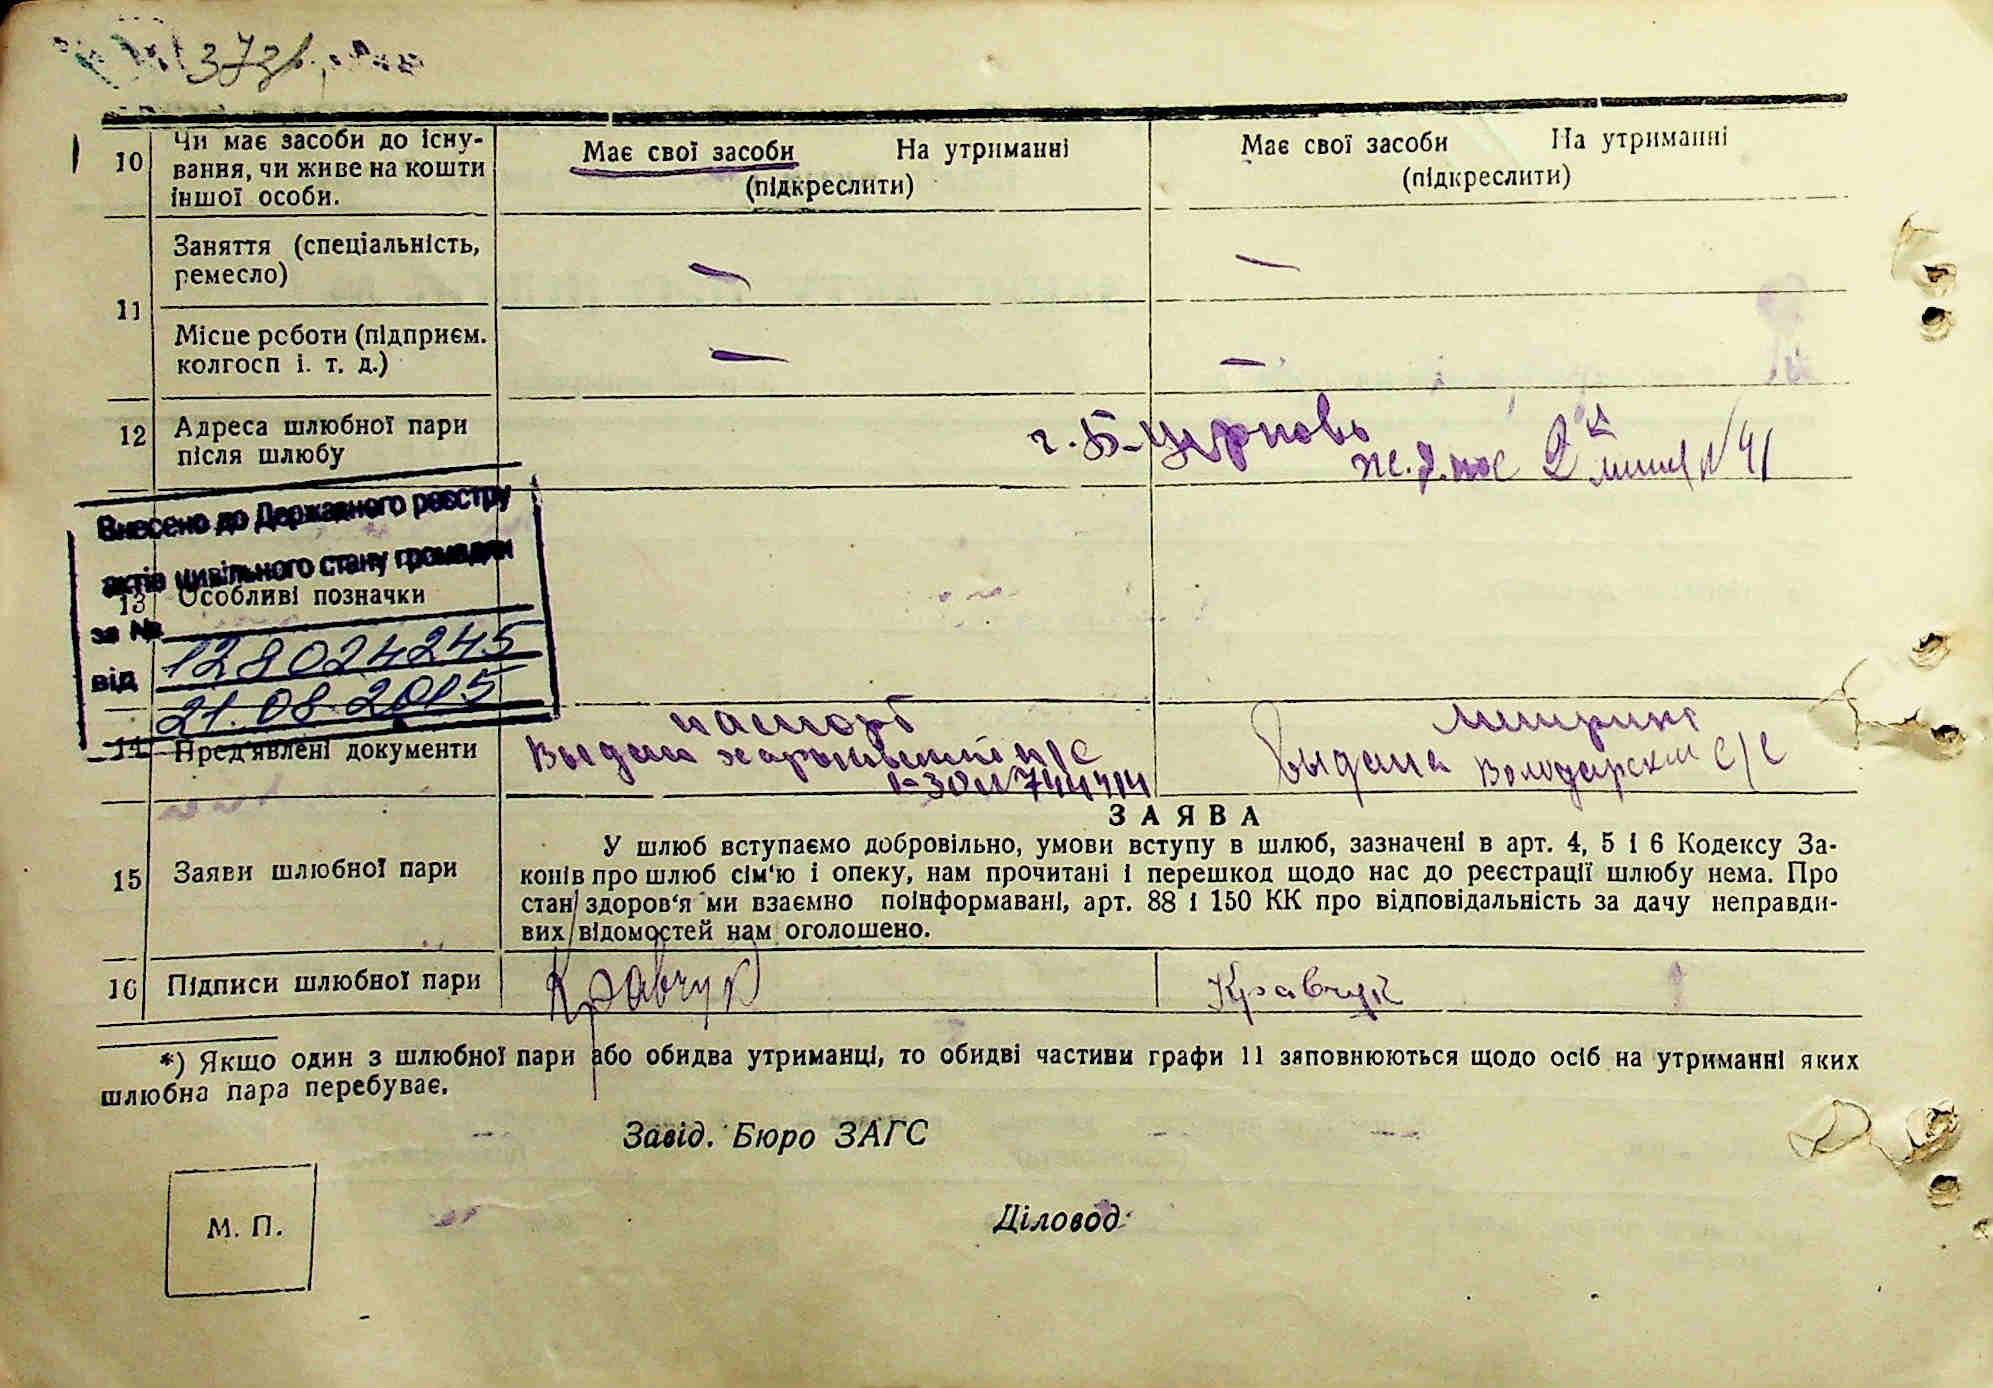 373
10 Чи має засоби до існу-
вання, чи живе на кошти
іншої особи.
Має свої засоби На утриманні
(підкреслити)
Має свої засоби На утриманні
(підкреслити)
11
Заняття (спеціальність,
ремесло)
—
—
Місце роботи (підприєм.
колгосп і. т. д.)
—
—
12 Адреса шлюбної пари
після шлюбу
г. Б-Церковь
ж.д. пос 2й линия N 41
Внесено до Державного реєстру
актів цивільного стану громадян
за № 128024245
від 21.08.2015
13 Особливі позначки
14 Пред'явлені документи
паспорт
Выдан с/с
744414
Выдана Володарским с/с
15 Заяви шлюбної пари
ЗАЯВА
У шлюб вступаємо добровільно, умови вступу в шлюб, зазначені в арт. 4, 5 і 6 Кодексу За-
конів про шлюб сім'ю і опеку, нам прочитані і перешкод щодо нас до реєстрації шлюбу нема. Про
стан здоров'я ми взаємно поінформавані, арт. 88 і 150 КК про відповідальність за дачу неправди-
вих відомостей нам оголошено.
16 Підписи шлюбної пари
Кравчук
Кравчук
*) Якщо один з шлюбної пари або обидва утриманці, то обидві частини графи 11 заповнюються щодо осіб на утриманні яких
шлюбна пара перебуває.
Завід. Бюро ЗАГС
Діловод
М. П.